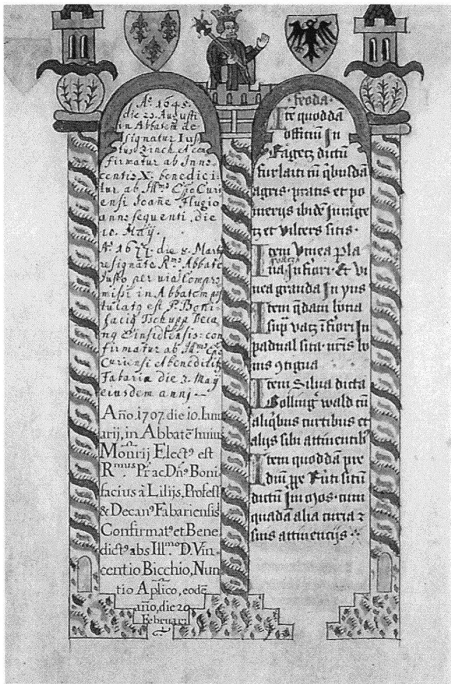 Aº. 1645.
die 23. Augusti
in Abbatem de
signatur Ius
tus Zinck et con
firmatur ab Inno
centio X. benedici
tur ab Ill.mo Epo Curi
ensi Joane Flugio
anno sequenti, die
10. Maij.
Aº 1677 die 8. Martij
resignate R.mo Abbate
Justo per via Compro
missi in Abbatem pos
tulatꝰ est P. Boni
faciꝰ Tschupp Deca
nꝰ Einsidlensis: con
firmatur ab Ill.mo Epo
Curiensi
Fabaria die 3. May
eiusdem anni
Año 1707. die 10. Ianu
arij, in Abbatē huius
Monrij Electꝰ est
Rmus P: ac Dñs Boni
facius à Lilijs, Profess
& Decanꝰ Fabariensis
Confirmatꝰ et Bene
dictꝰ abs Ill.mo D. Vin
centio Bicchio, Nun
tio Aplico, eodē
año, die 20
Februari
feoda
Itē quoddā
officiū In
Ragetz dictū
furlaiti in qͥbusdā
agris pratis et po
merijs ibidē In rage
tz et vilters sitis
Item Vinea pla
Item qdam bona
supͣ vatz ifiori In
padual sita vrīs lo
Item Silua dicta
Bolling wald cū
aliqͥbus curtibus et
alijs sibi attinentib
Item quoddam pre
diū Ruti sitū
dictū Im mos cum
quadā alia curia z
suis attinencijs